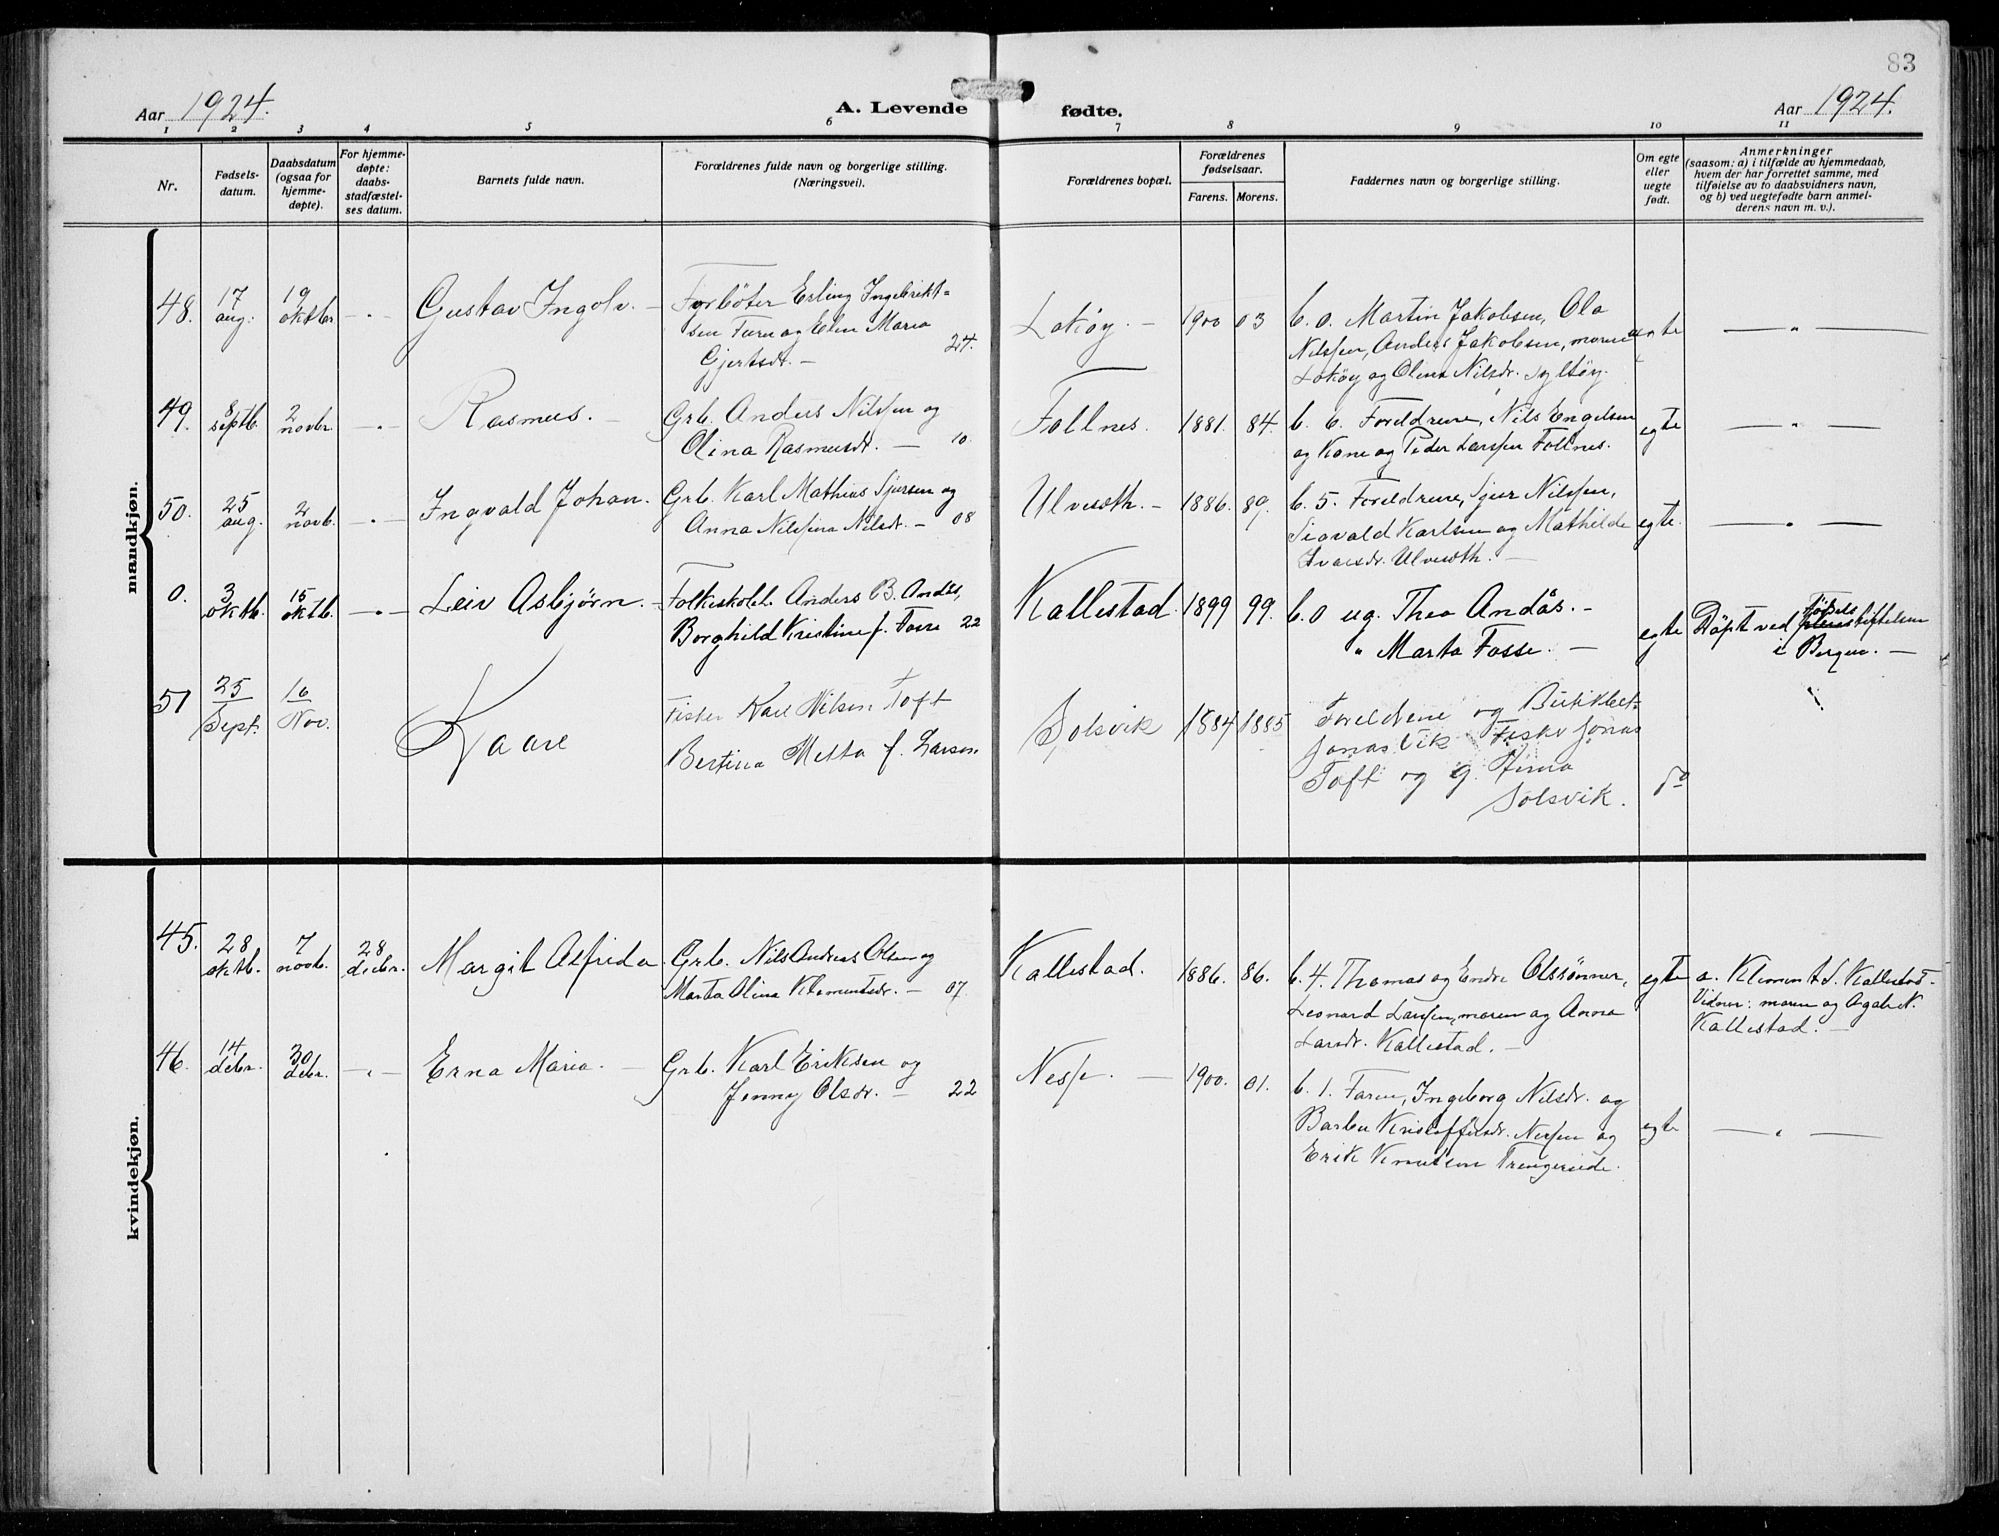 83
Aar 1924.
A. Levende
fødte.
Aar 1924.
1 2 3 4 5 6 7 8 9 10 11
Nr.
Fødsels-
datum.
Daabsdatum
(ogsaa for
hjemme-
døpte).
For hjemme-
døpte:
daabs-
stadfæstel-
ses datum.
Barnets fulde navn.
Forældrenes fulde navn og borgerlige stilling.
(Næringsvei).
Forældrenes bopæl.
Forældrenes
fødselsaar.
Farens. Morens.
Faddernes navn og borgerlige stilling.
Om egte
eller
uegte
født.
Anmerkninger
(saasom: a) i tilfælde av hjemmedaab,
hvem der har forrettet samme, med
tilføielse av to daabsvidners navn,
og b) ved uegtefødte barn anmel-
derens navn m. v.).
mandkjøn.
48.
17
aug.
19
oktbr
Gustav Ingolv. –
Fyrbøter Erling Ingebrikt-
sen Turn og Elen Maria
Gjertsdt. – 24.
Lokøy. –
1900 03
b. 0. Martin Jakobsen, Ola
Nilssen, Anders Jakobsen, moren
Lokøy og Olena Nilsdr. Syltøy.
egte
— " —
49.
8
septb.
2
novbr.
Rasmus.
Grb. Anders Nilssen og
Olina Rasmusdt. — 10.
Follnes.
1881. 84.
b. 6. Foreldrene, Nils Engelsen
og Kone og Peder Larssen Follnes.
egte
— " —
50.
25
aug.
2
novb.
Ingvald Johan.
Grb. Karl Mathias Sjursen og
Anna Nilssina Nilsdr. – 08
Ulvesæth. –
1886. 89.
b. 5. Foreldrene, Sjur Nilssen,
Sigvald Karlsen og Mathilde
Ivarsdr. Ulvesæth. –
egte.
— " —
0.
3
oktb.
15
oktb.
Leiv Asbjørn. –
Folkeskoll. Anders B. Andås,
Borghild Kristine f. Fosse 22
Kallestad.
1899 99.
b. 0 ug. Thea Andås. –
" Marta Fosse. –
egte
Døpt ved Fødselsstiftelsen
i Bergen. –
51
25
Sept.
16
Nov.
Kaare
Fisker Karl Nilsen Toft
Bertina Metta f. Larsen
Solsvik
1884 1885
Foreldrene og Butikbet.
Jonas Vik Fisker Jonas
Toft og g.
Solsvik.
do
kvindekjøn.
45.
28
oktb.
7
novb.
28
debr.
Margit Alfrida
Grb. Nils Andreas Olsen og
Marta Olina Klementsdr. – 07.
Kallestad.
1886. 86.
b. 4. Thomas og Endre Olssønner,
Leonard Larssen, moren og Anna
Larsdr. Kallestad. –
egte
a. Klement S. Kallestad.
Vidner: moren og Agate N.
Kallestad. –
46.
14
debr.
30
debr.
Erna Maria. –
Grb. Karl Eriksen og
Jenny Olsdr. – 22
Nesse. –
1900. 01.
b. 1. Faren, Ingeborg Nilsdr. og
Barbra Kristoffersdr. Nessen og
Erik Knutsen Trengereide.
egte
— " —